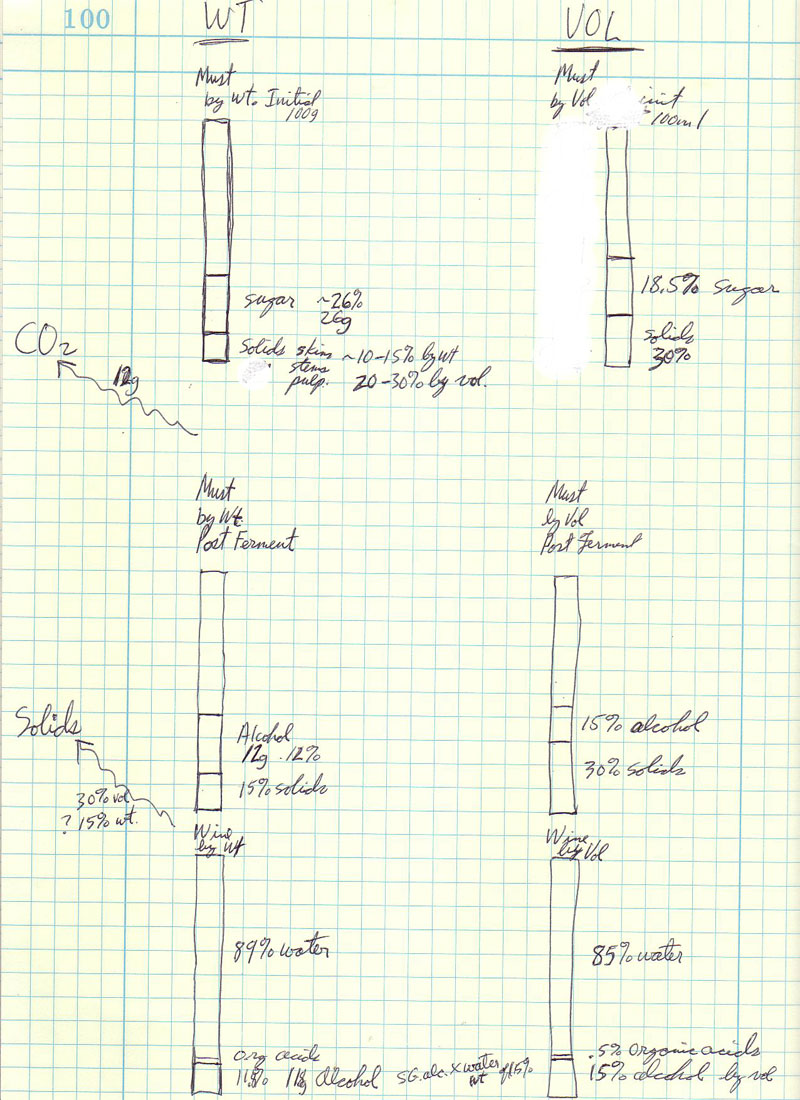 100
WT
VOL
Must
by wt. Initial
100g
Must
by Vol
100ml
sugar ~26%
26g
18.5% sugar
CO2
12g
Solids skins ~10-15% by wt
stems
pulp. 20-30% by vol.
solids
30%
Must
by Wt.
Post Ferment
Must
by Vol
Post Ferment
Alcohol
12g .12%
15% solids
15% alcohol
30% solids
Solids
30% vol
? 15% wt.
Wine
by Wt
Wine
by Vol
89% water
85% water
org acids
Alcohol SG.alc. x water
wt
.5% organic acids
15% alcohol by vol